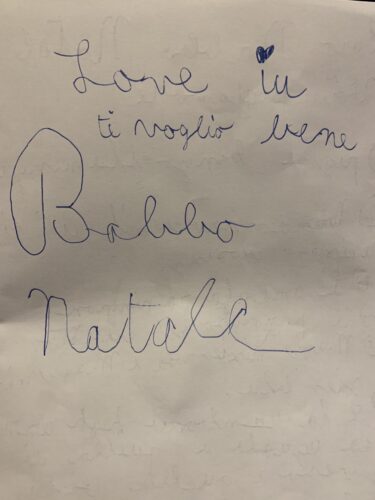 Love iu
ti voglio bene
Babbo
Natale